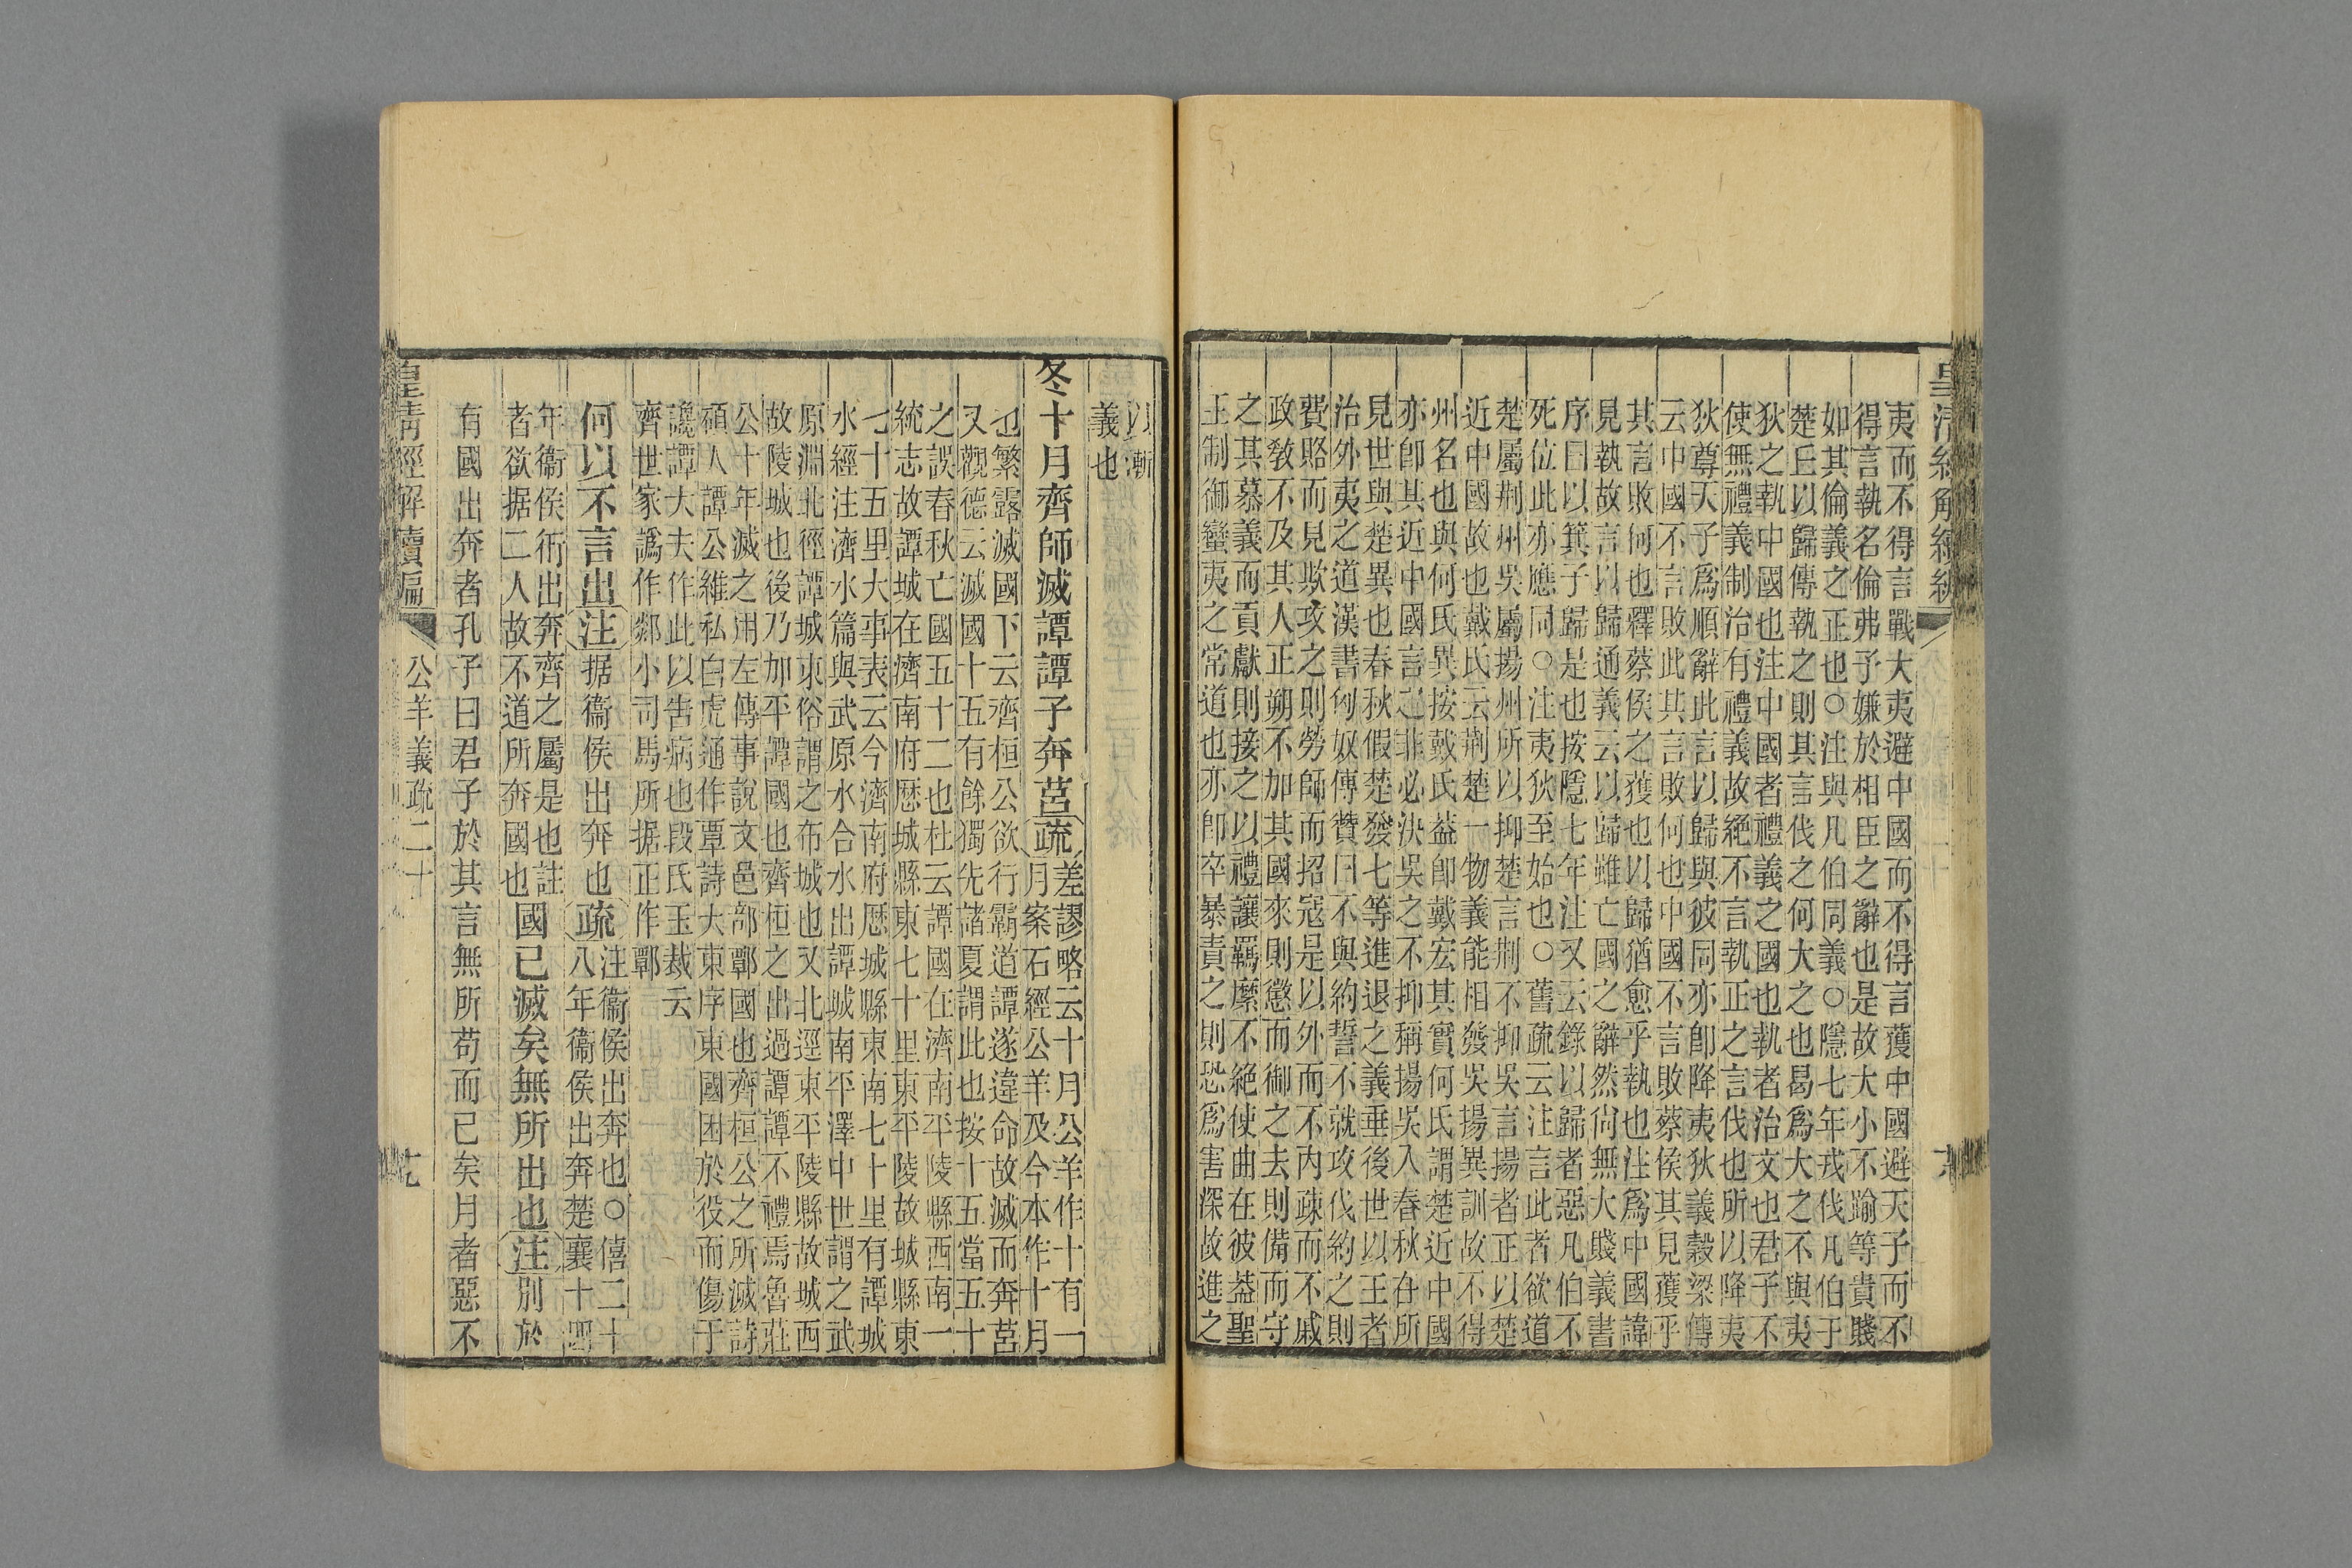 夷而不得言戰大夷避中國而不得言獲中國避天子而不
得言執名倫弗子嫌於相臣之辭也是故大小不踰等貴賤
如其倫義之正也○注與凡伯同義○隱七年戎伐凡伯于
楚丘以歸傳執之則其言伐之何大之也曷爲大之不與夷
狄之執中國也注中國者禮義之國也執者治文也君子不
使無禮義制治有禮義故絕不言執正之言伐也所以降夷
狄尊天子爲順辭此言以歸與彼同亦卽降夷狄義穀梁傳
云中國不言敗此其言敗何也中國不言敗蔡侯其見獲乎
其言敗何也釋蔡侯之獲也以歸猶愈乎執也注爲中國諱
見執故言以歸通義云以歸雖亡國之辭然尙無大賤義書
序曰以箕子歸是也按隱七年注又云錄以歸者惡凡伯不
死位此亦應同○注夷狄至始也○舊疏云注言此者欲道
楚屬荆州吳屬揚州所以抑楚言荆不抑吳言揚者正以楚
近中國故也戴氏云荆楚一物義能相發吳揚異訓故不得
州名也與何氏異按戴氏葢卽戴宏其實何氏謂楚近中國
亦卽其近中國言之非必決吳之不抑稱揚吳入春秋在所
見世與楚異也春秋假楚發七等進退之義垂後世以王者
治外夷之道漢書匈奴傳贊曰不與約誓不就攻伐約之則
費賂而見欺攻之則勞師而招寇是以外而不內疎而不戚
政敎不及其人正朔不加其國來則懲而御之去則備而守
之其慕義而貢獻則接之以禮讓羈縻不絕使曲在彼葢聖
王制御蠻夷之常道也亦卽卒暴責之則恐爲害深故進之
以漸
義也
冬十月齊師滅譚譚子奔莒疏差謬略云十月公羊作十有一
月案石經公羊及今本作十月
也繁露滅國下云齊桓公欲行霸道譚遂違命故滅而奔莒
又觀德云滅國十五有餘獨先諸夏謂此也按十五當五十
之誤春秋亡國五十二也杜云譚國在濟南平陵縣西南一
統志故譚城在濟南府歷城縣東七十里東平陵故城縣東
七十五里大事表云今濟南府歷城縣東南七十里有譚城
水經注濟水篇與武原水合水出譚城南平澤中世謂之武
原淵北徑譚城東俗謂之布城也又北逕東平陵縣故城西
故陵城也後乃加平譚國也齊桓之出過譚譚不禮焉魯莊
公十年滅之用左傳事說文邑部鄲國也齊桓公之所滅詩
碩人譚公維私白虎通作覃詩大東序東國困於役而傷于
讒譚大夫作此以告病也段氏玉裁云
齊世家譌作郯小司馬所据正作鄲
何以不言出注据衞侯出奔也疏注衞侯出奔也○僖二十
八年衞侯出奔楚襄十四
年衞侯衎出奔齊之屬是也註
者欲据二人故不道所奔國也國已滅矣無所出也注別於
有國出奔者孔子曰君子於其言無所苟而已矣月者惡不
皇淸經解續編
公羊義疏二十